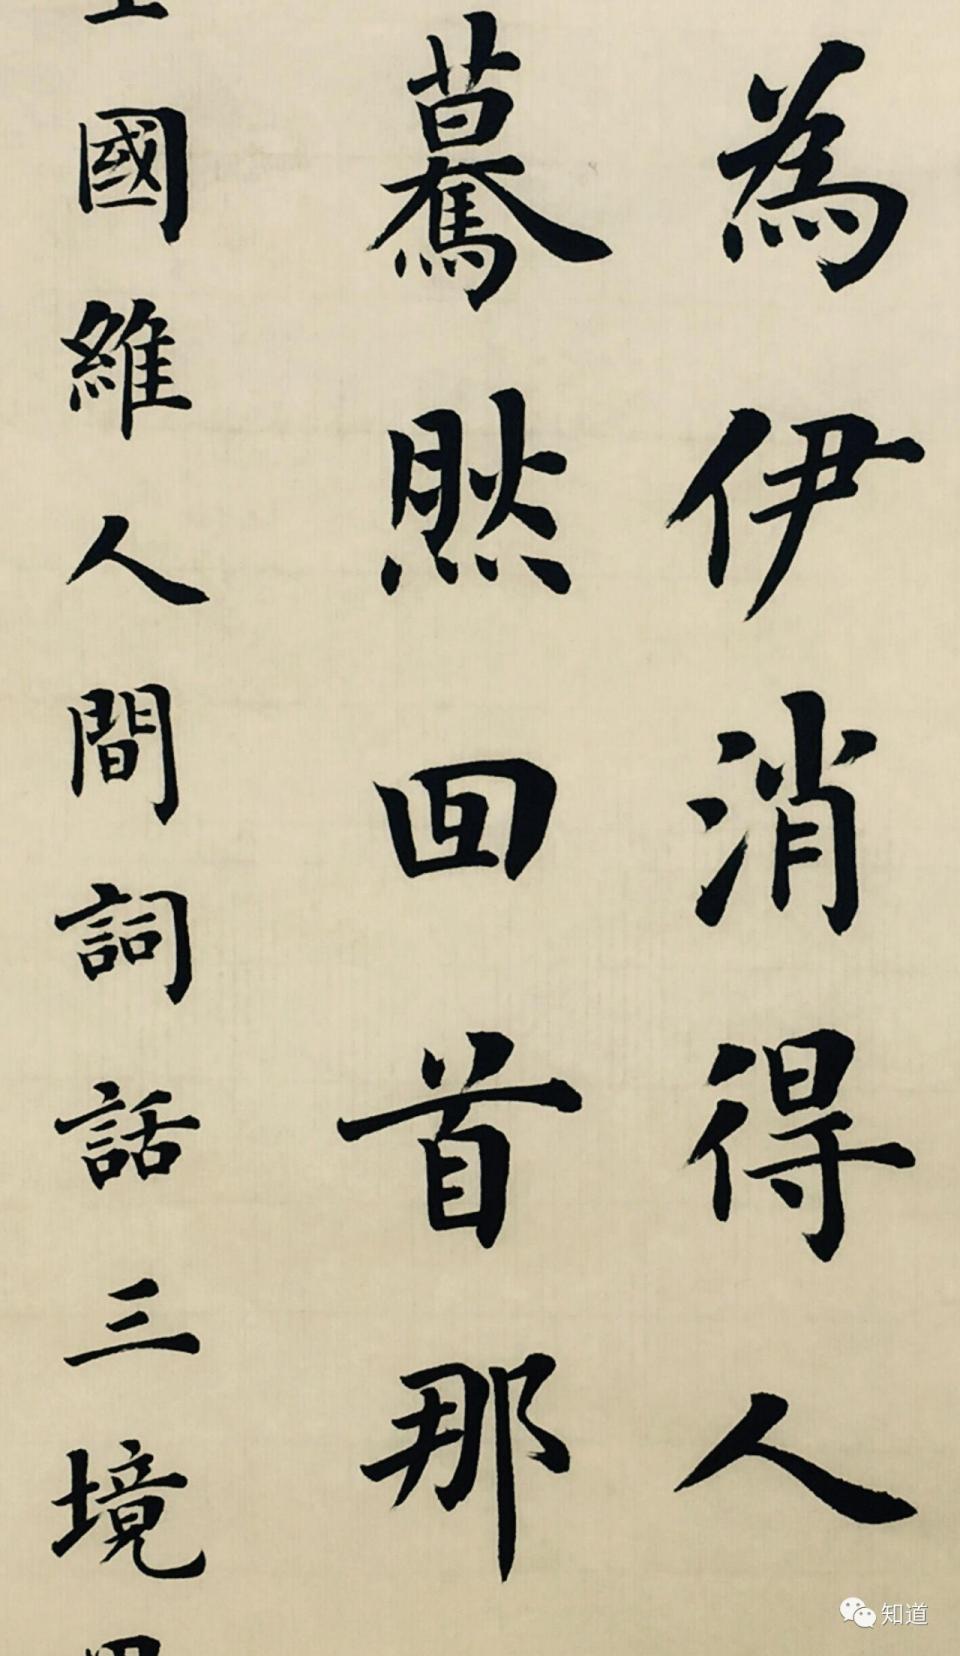 為伊消得人
驀然回首那
國維人間詞話三境
知道